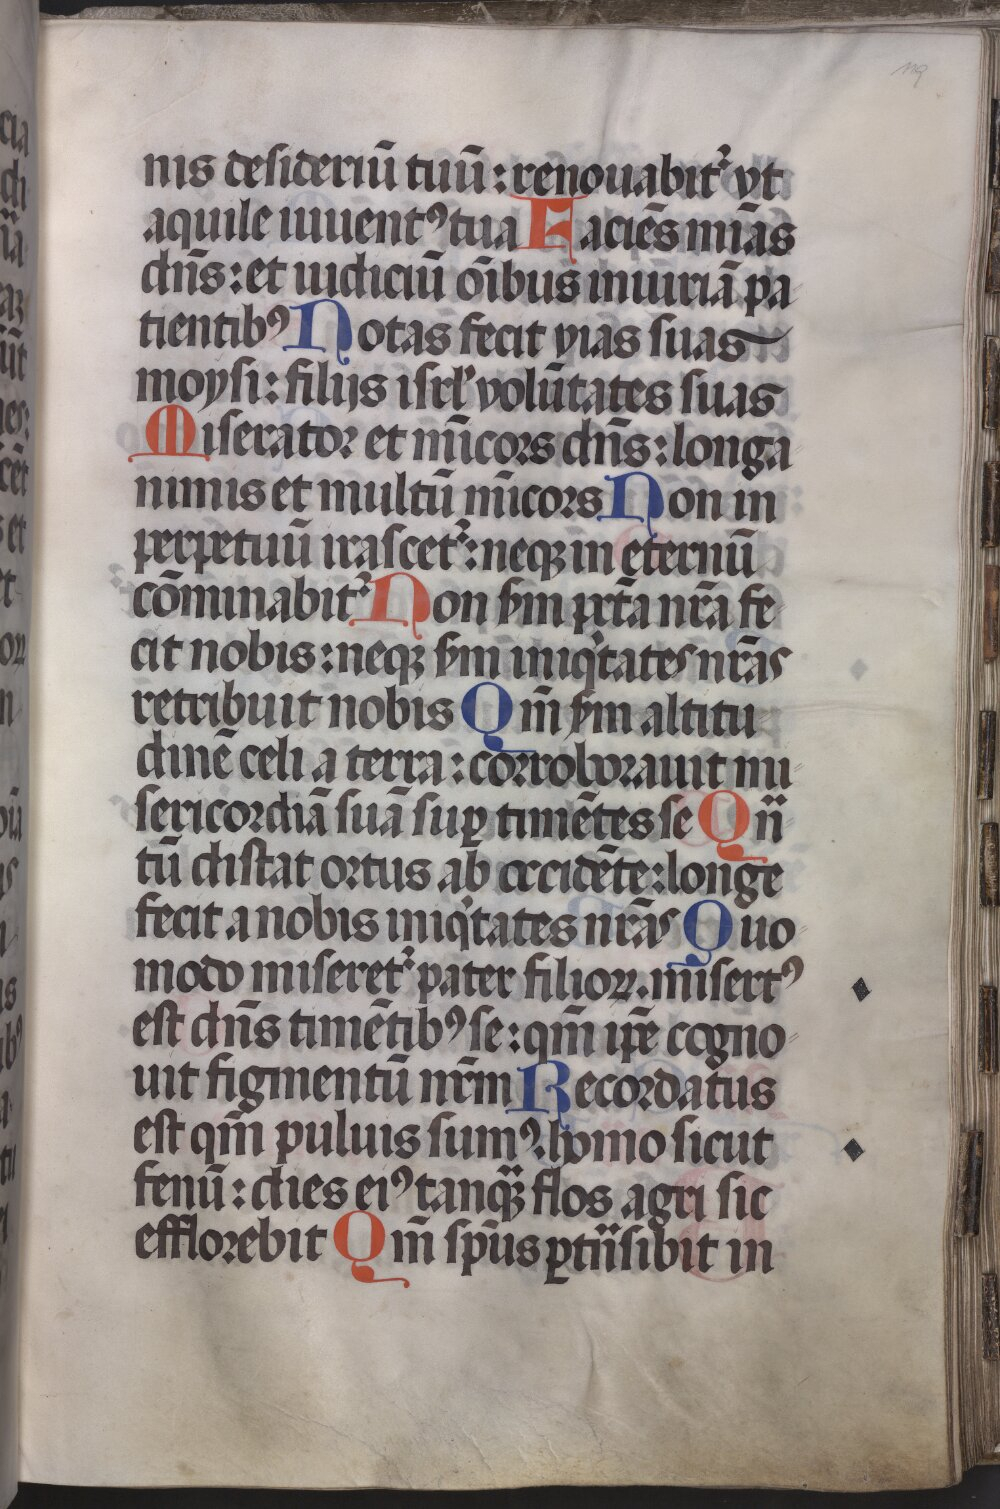 nis desideriū tuū : renouabit᷑ vt
aquile iuuentꝰ tua Faciēs mīas
dn̄s : et iudiciū oībus iniuriā pa
tientibꝰ Notas fecit vias suas
moysi : filijs isrl' volūtates suas
Miserator et mīcors dn̄s : longa
nimis et multū mīcors Non in
perpetuū irascet᷑ : neqꝫ in eternū
cōminabit᷑ Non scd'm pctā nrā fe
cit nobis : neqꝫ scd'm iniqͥtates nrās
retribuit nobis Qm̄ scd'm altitu
dinē celi a terra : corroborauit mi
sericordiā suā suꝑ timētes se Qn̄
tū distat ortus ab occidēte : longe
fecit a nobis iniqͥtates nrās Quo
modo miseret᷑ pater filioꝝ . misertꝰ
est dn̄s timētibꝰ se : qm̄ ip̄e cogno
uit figmentū nrm̄ Recordatus
est qm̄ puluis sumꝰ . homo sicut
fenū : dies eiꝰ tanqᷓꝫ flos agri sic
efflorebit Qm̄ sp̄us ꝑtn̄sibit in